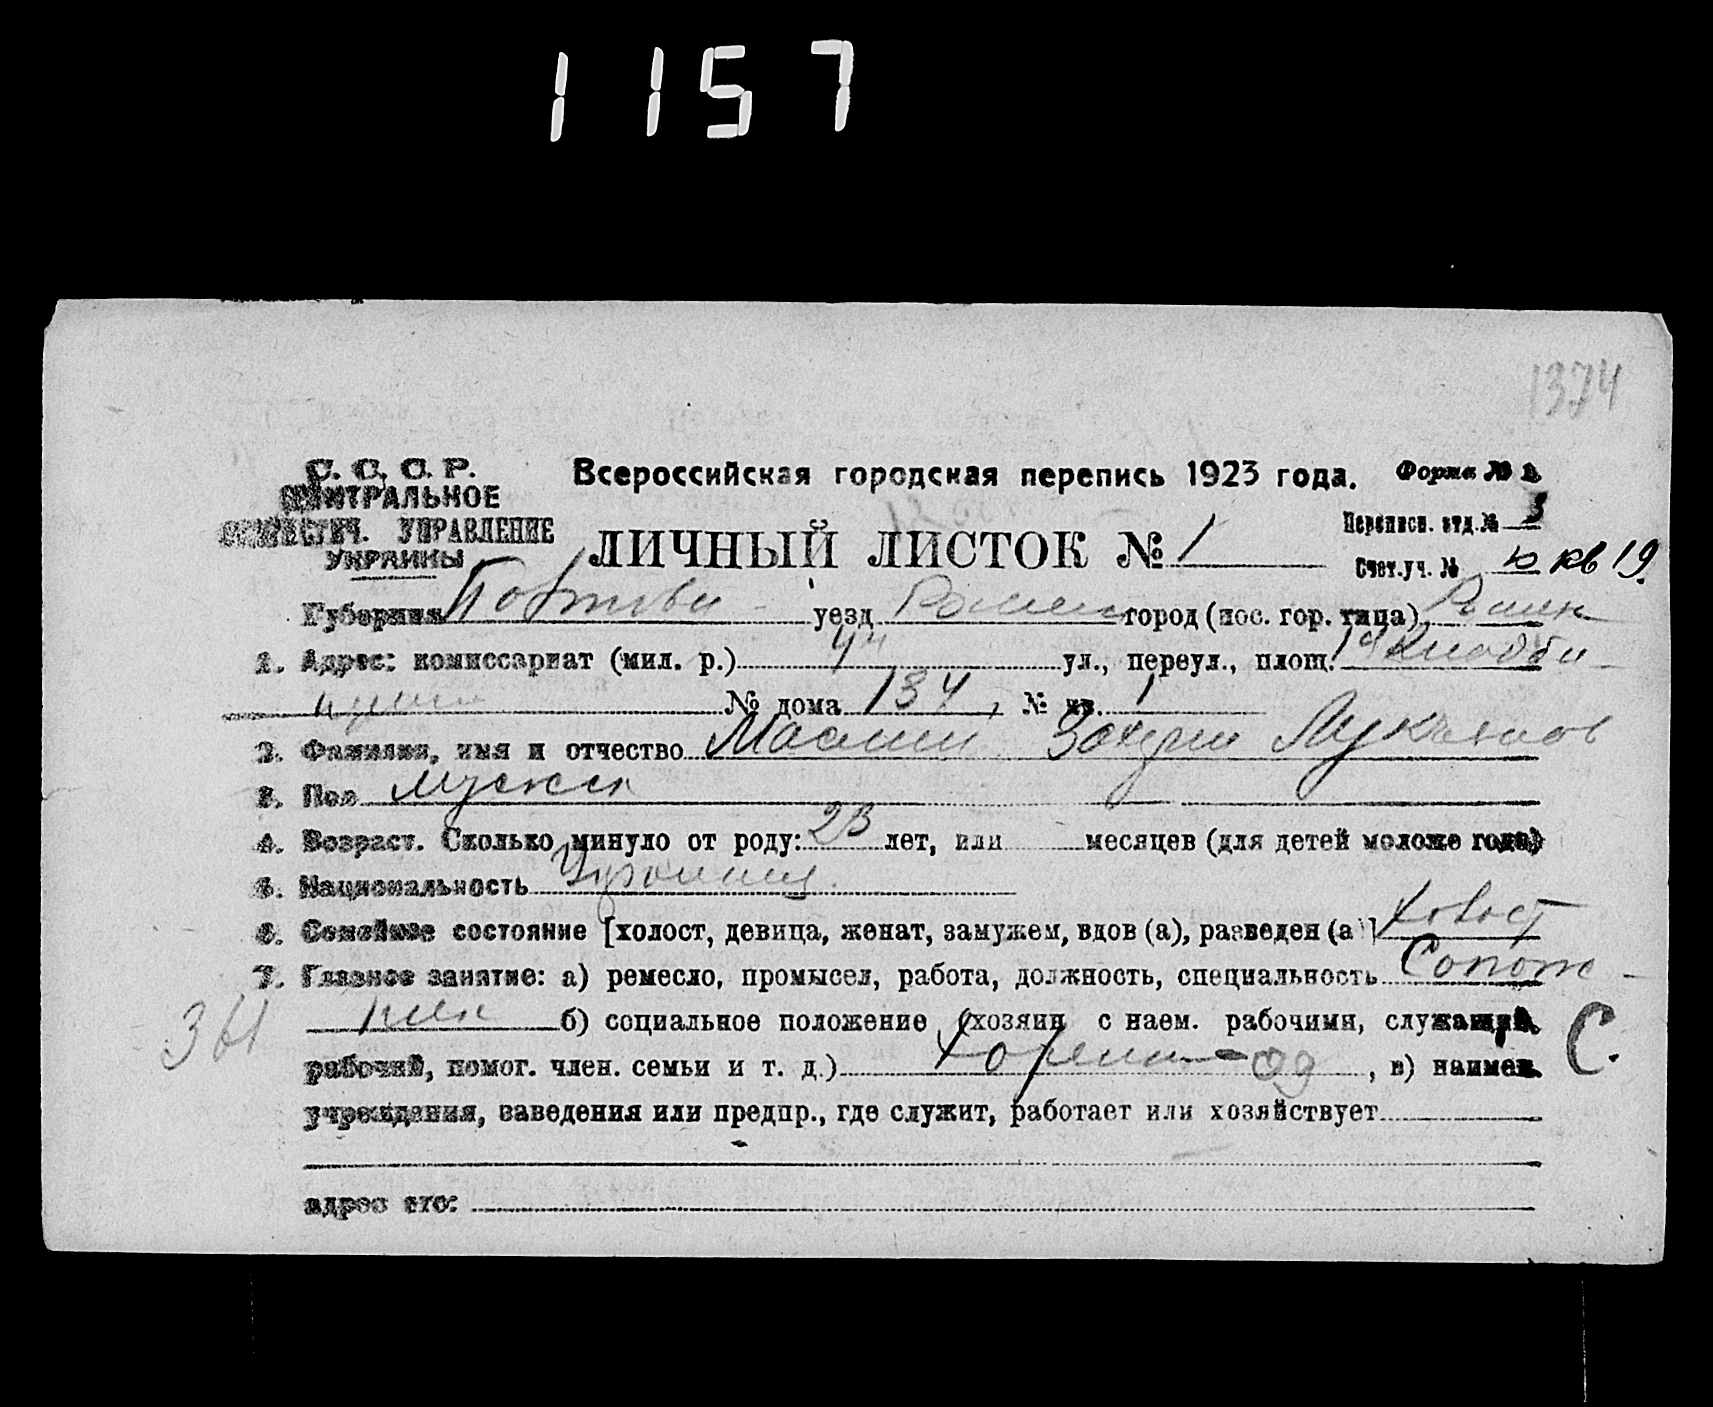 1157
1374
С. С. С. Р.
ЦЕНТРАЛЬНОЕ
СТАТИСТИЧ. УПРАВЛЕНИЕ
УКРАИНЫ
Всероссийская городская перепись 1923 года. Форма №
ЛИЧНЫЙ ЛИСТОК № 1
Переписн. отд. № 3
Счет. уч. № 10 кв 19.
Губерния Полтавск уезд Ромен город (пос. гор. типа) Ромен
1. Адрес: комиссариат (мил. р.) 4й ул., переул., площ. 1я
№ дома 134, № кв. 1
2. Фамилия, имя и отчество Захарий Лукьянов
3. Пол мужск
4. Возраст. Сколько минуло от роду: 23 лет, или месяцев (для детей моложе года)
5. Национальность Украинец
6. Семейное состояние [холост, девица, женат, замужем, вдов (а), разведен (а)] холост
7. Главное занятие: а) ремесло, промысел, работа, должность, специальность Сапож-
ник б) социальное положение (хозяин с наем. рабочими, служащий,
рабочий, помог. член. семьи и т. д.) Хозяин-од, в) наимен.
учреждения, заведения или предпр., где служит, работает или хозяйствует
адрес его:
361
С.